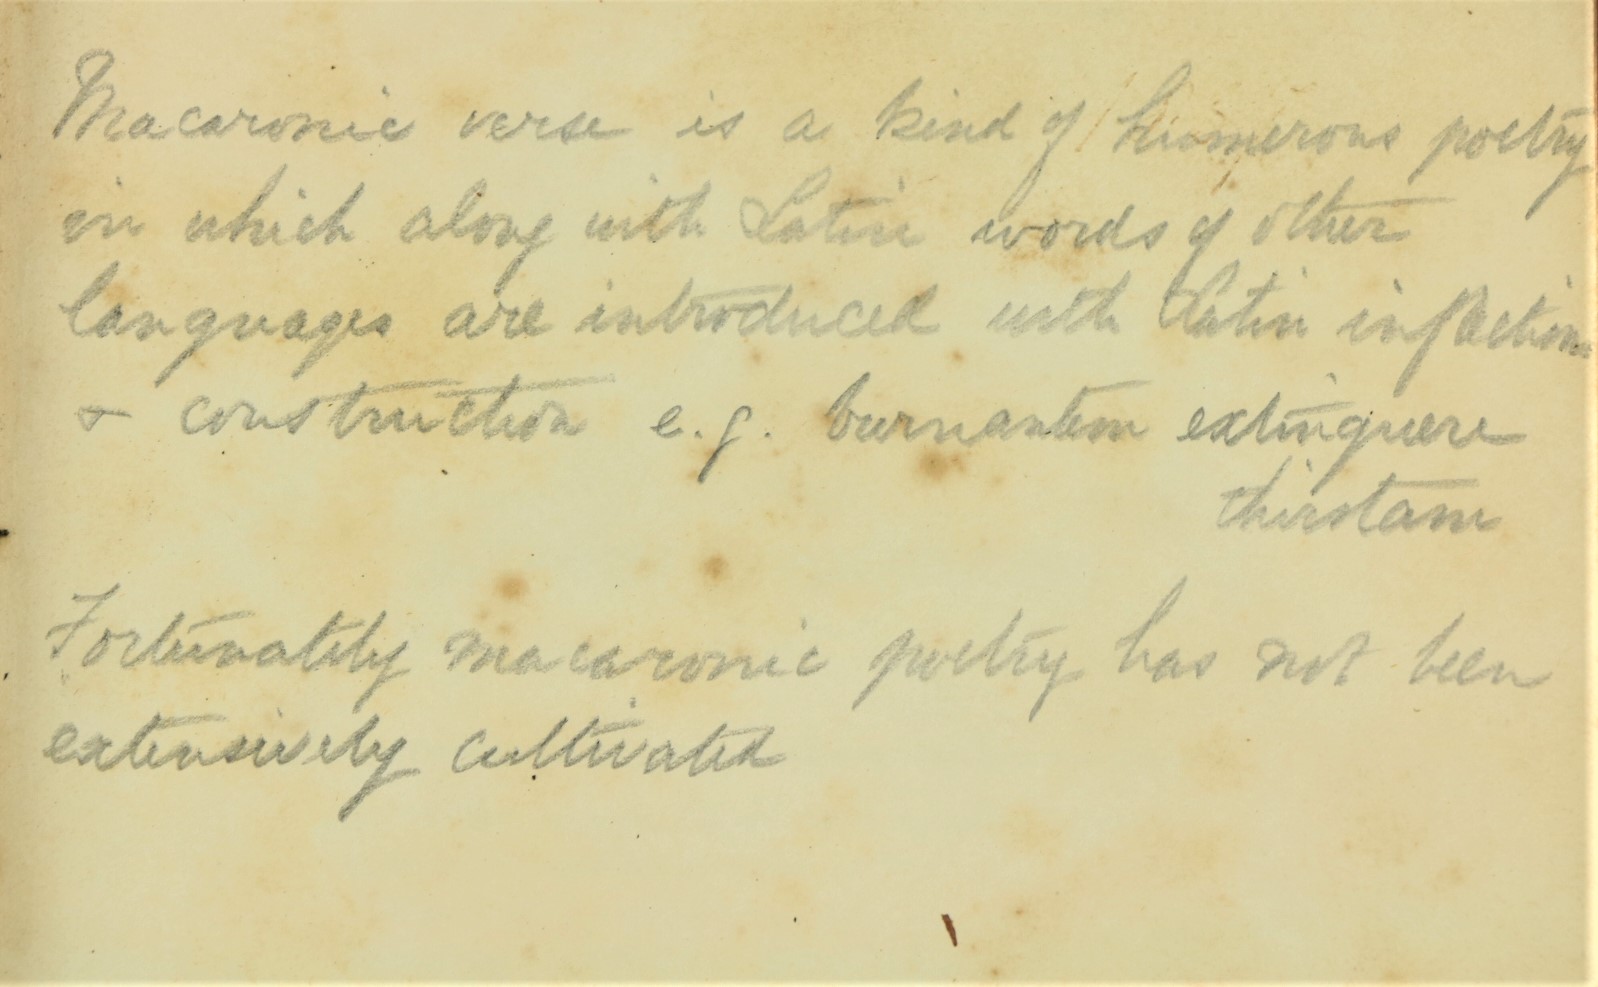 Macaronic verse is a kind of humerous poetry
in which along with Latin words of other
languages are introduced with Latin inflections
& construction e.g. burnantem extinguere
thirstam
Fortunately macaronic poetry has not been
extensively cultivated